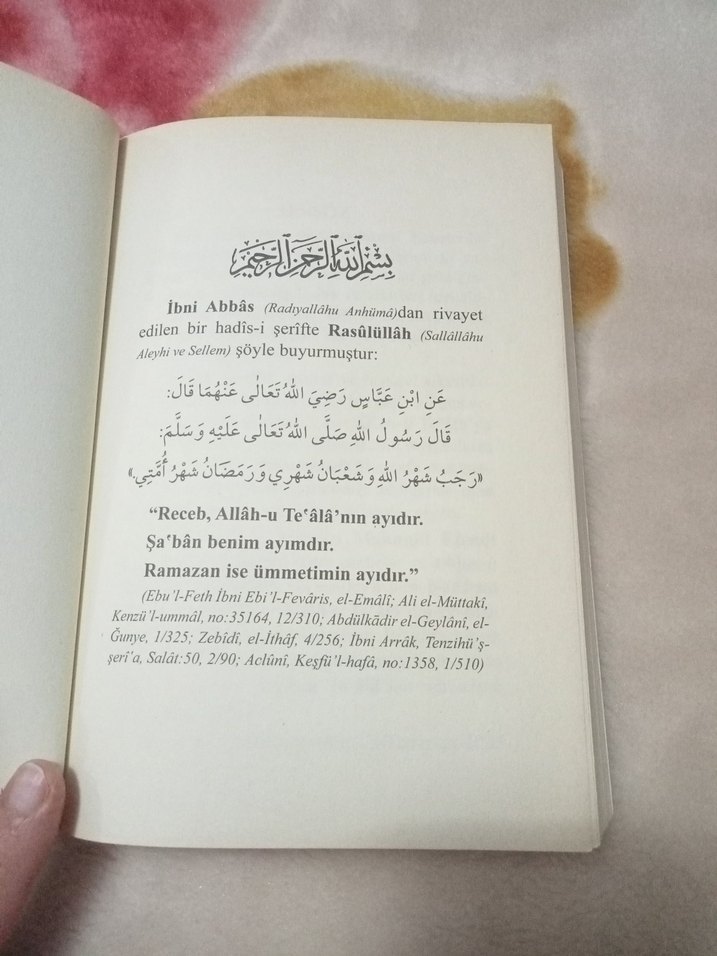 بِسْمِ اللهِ الرَّحْمٰنِ الرَّحِيمِ
İbni Abbâs (Radıyallâhu Anhümâ)dan rivayet
edilen bir hadîs-i şerîfte Rasûlüllâh (Sallâllâhu
Aleyhi ve Sellem) şöyle buyurmuştur:
عَنِ ابْنِ عَبَّاسٍ رَضِيَ اللهُ تَعَالٰى عَنْهُمَا قَالَ:
قَالَ رَسُولُ اللهِ صَلَّى اللهُ تَعَالٰى عَلَيْهِ وَسَلَّمَ:
«رَجَبُ شَهْرُ اللهِ وَشَعْبَانُ شَهْرِي وَرَمَضَانُ شَهْرُ أُمَّتِي.»
“Receb, Allâh-u Te‘âlâ’nın ayıdır.
Şa‘bân benim ayımdır.
Ramazan ise ümmetimin ayıdır.”
(Ebu’l-Feth İbni Ebi’l-Fevâris, el-Emâlî; Ali el-Müttakî,
Kenzü’l-ummâl, no:35164, 12/310; Abdülkâdir el-Geylânî, el-
Ğunye, 1/325; Zebîdî, el-İthâf, 4/256; İbni Arrâk, Tenzihü’ş-
şerî‘a, Salât:50, 2/90; Aclûnî, Keşfü’l-hafâ, no:1358, 1/510)